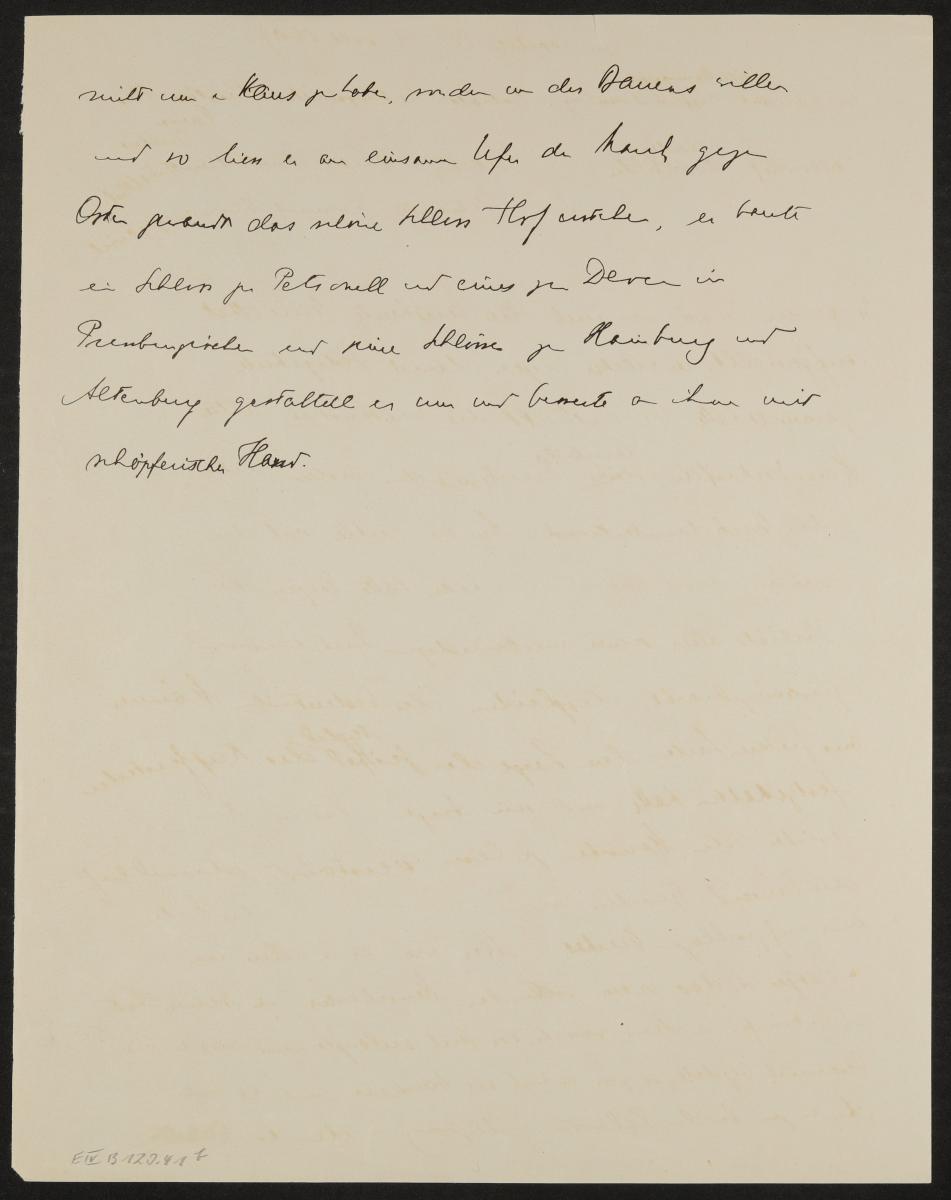 nicht um e Haus zu haben, sondern um des Bauens willen
und so liess er am einsamen Ufer der March gegen
Osten gewandt das schöne Schloss Hof erstehen, er baute
ein Schloss zu Petronell und eines zu Deven im
Pressburgischen und seine Schlösser zu Hainburg und
Altenburg gestaltete er um und besserte an ihnen mit
schöpferischer Hand.
E IV B 120.41 b